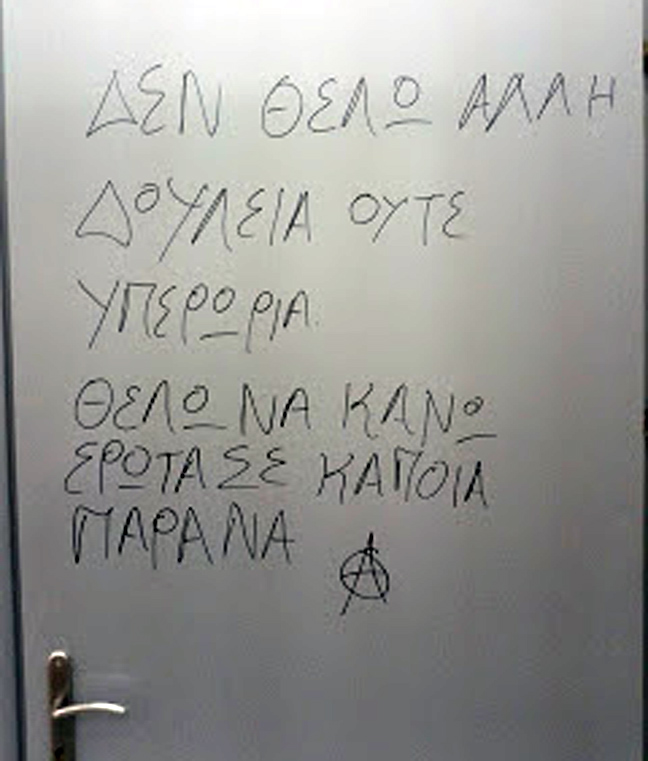 ΔΕΝ ΘΕΛΩ ΑΛΛΗ
ΔΟΥΛΕΙΑ ΟΥΤΕ
ΥΠΕΡΩΡΙΑ
ΘΕΛΩ ΝΑ ΚΑΝΩ
ΕΡΩΤΑ ΣΕ ΚΑΠΟΙΑ
ΠΑΡΑΝΑ
Ⓐ